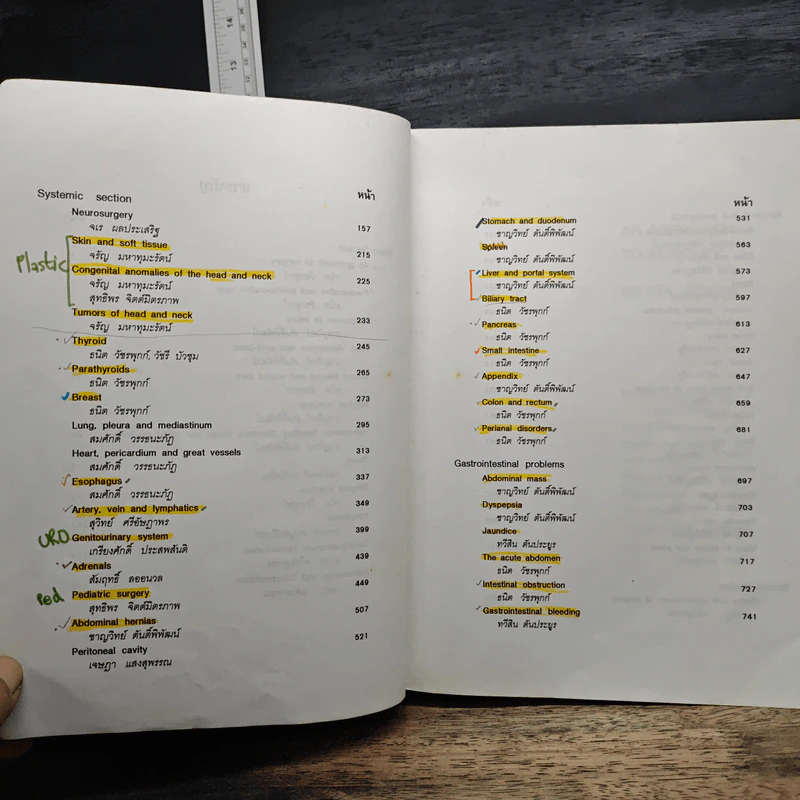 14
13
Systemic section หน้า
Neurosurgery 157
จเร ผลประเสริฐ
Plastic
Skin and soft tissue 215
จรัญ มหาทุมะรัตน์
Congenital anomalies of the head and neck 225
จรัญ มหาทุมะรัตน์
สุทธิพร จิตต์มิตรภาพ
Tumors of head and neck 233
จรัญ มหาทุมะรัตน์
Thyroid 245
ธนิต วัชรพุกก์, วัชรี บัวชุม
Parathyroids 265
ธนิต วัชรพุกก์
Breast 273
ธนิต วัชรพุกก์
Lung, pleura and mediastinum 295
สมศักดิ์ วรรธนะภัฏ
Heart, pericardium and great vessels 313
สมศักดิ์ วรรธนะภัฏ
Esophagus 337
สมศักดิ์ วรรธนะภัฏ
Artery, vein and lymphatics 349
สุวิทย์ ศรีอัษฎาพร
URO Genitourinary system 399
เกรียงศักดิ์ ประสพสันติ
Adrenals 439
สัมฤทธิ์ ลออนวล
Ped Pediatric surgery 449
สุทธิพร จิตต์มิตรภาพ
Abdominal hernias 507
ชาญวิทย์ ตันติ์พิพัฒน์
Peritoneal cavity 521
เจษฎา แสงสุพรรณ
หน้า
Stomach and duodenum 531
ชาญวิทย์ ตันติ์พิพัฒน์
Spleen 563
ชาญวิทย์ ตันติ์พิพัฒน์
Liver and portal system 573
ชาญวิทย์ ตันติ์พิพัฒน์
Biliary tract 597
ธนิต วัชรพุกก์
Pancreas 613
ธนิต วัชรพุกก์
Small intestine 627
ธนิต วัชรพุกก์
Appendix 647
ชาญวิทย์ ตันติ์พิพัฒน์
Colon and rectum 659
ธนิต วัชรพุกก์
Perianal disorders 681
ธนิต วัชรพุกก์
Gastrointestinal problems
Abdominal mass 697
ชาญวิทย์ ตันติ์พิพัฒน์
Dyspepsia 703
ชาญวิทย์ ตันติ์พิพัฒน์
Jaundice 707
ทวีสิน ตันประยูร
The acute abdomen 717
ธนิต วัชรพุกก์
Intestinal obstruction 727
ธนิต วัชรพุกก์
Gastrointestinal bleeding 741
ทวีสิน ตันประยูร